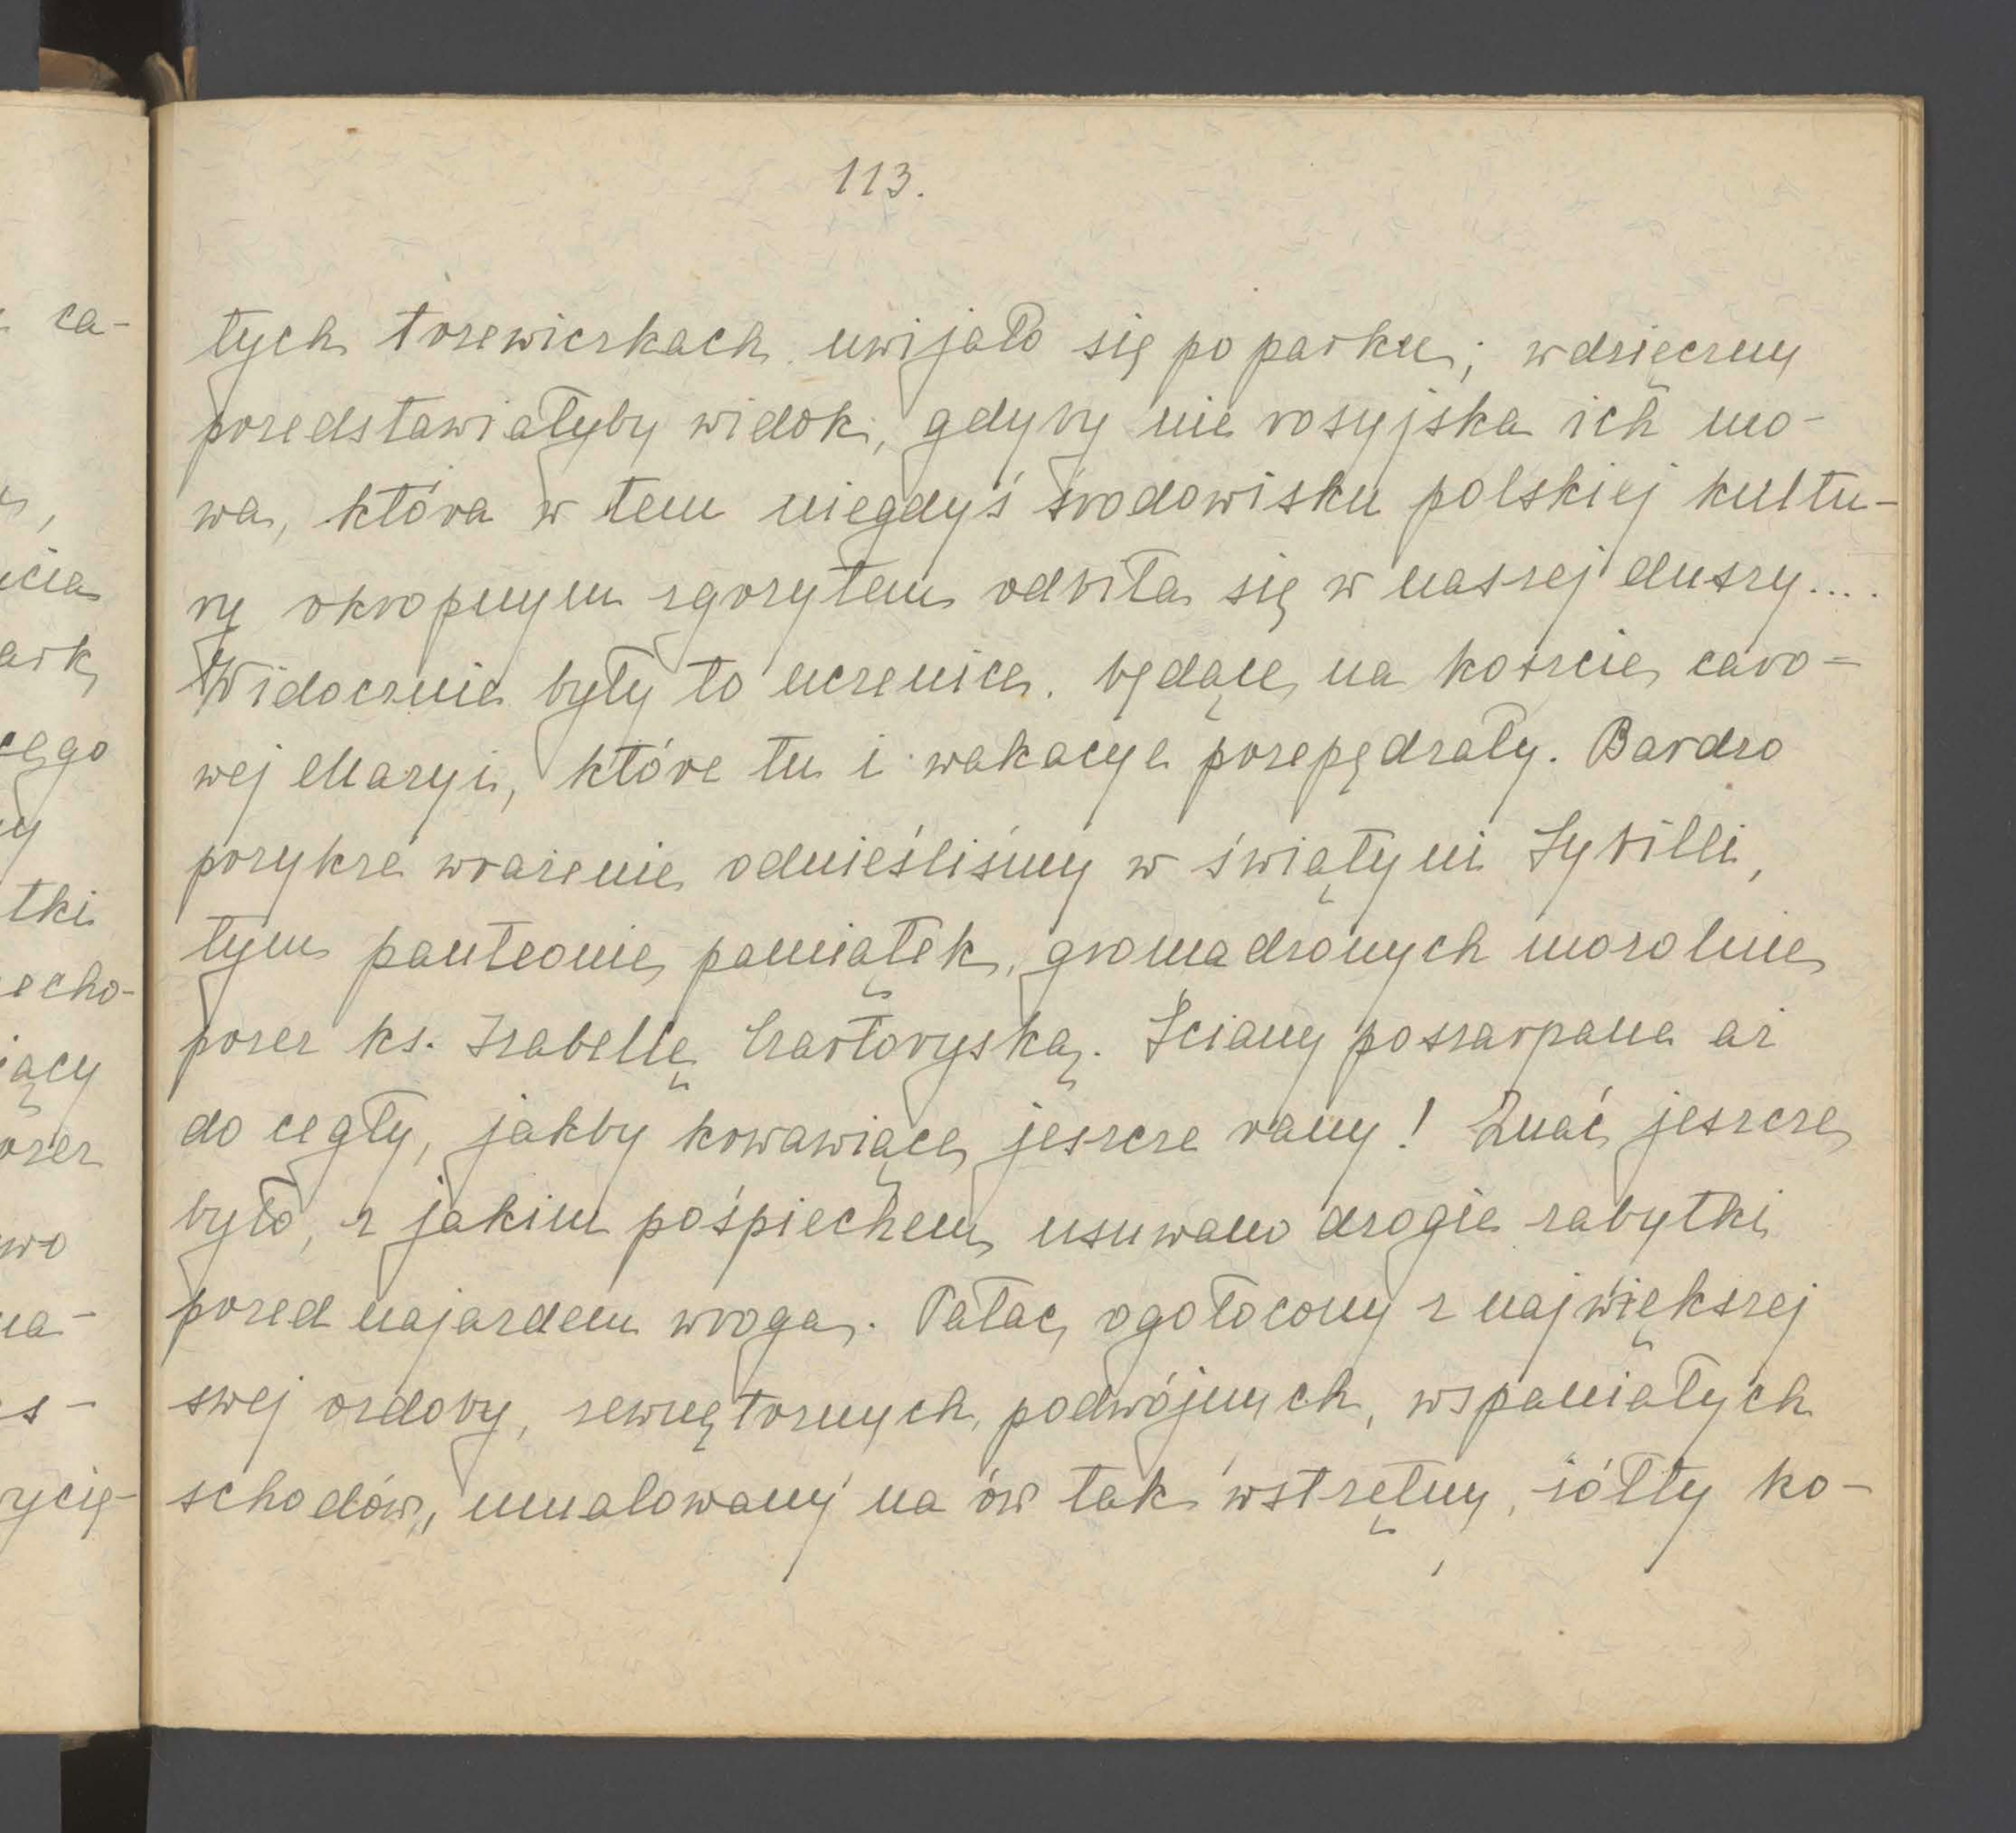 113.
tych trzewiczkach uwijało się po parku; wdzięczny
przedstawiałyby widok, gdyby nie rosyjska ich mo-
wa, która w tem niegdyś środowisku polskiej kultu-
ry okropnym zgrzytem odbiła się w naszej duszy....
Widocznie były to uczenice, będące na koszcie caro-
wej Maryi, które tu i wakacye przepędzały. Bardzo
przykre wrażenie odnieśliśmy w świątyni Sybilli,
tym panteonie pamiątek, gromadzonych mozolnie
przez ks. Izabellę Czartoryską. Ściany poszarpane aż
do cegły, jakby krwawiące jeszcze rany! Znać jeszcze
było, z jakim pośpiechem usuwano drogie zabytki
przed najazdem wroga. Pałac, ogołocony z największej
swej ozdoby, zewnętrznych, podwójnych, wspaniałych
schodów, umalowany na ów tak wstrętny, żółty ko-
ca-
ark
cego
tki
echo-
iący
rzez
wo
na-
s-
rycię-